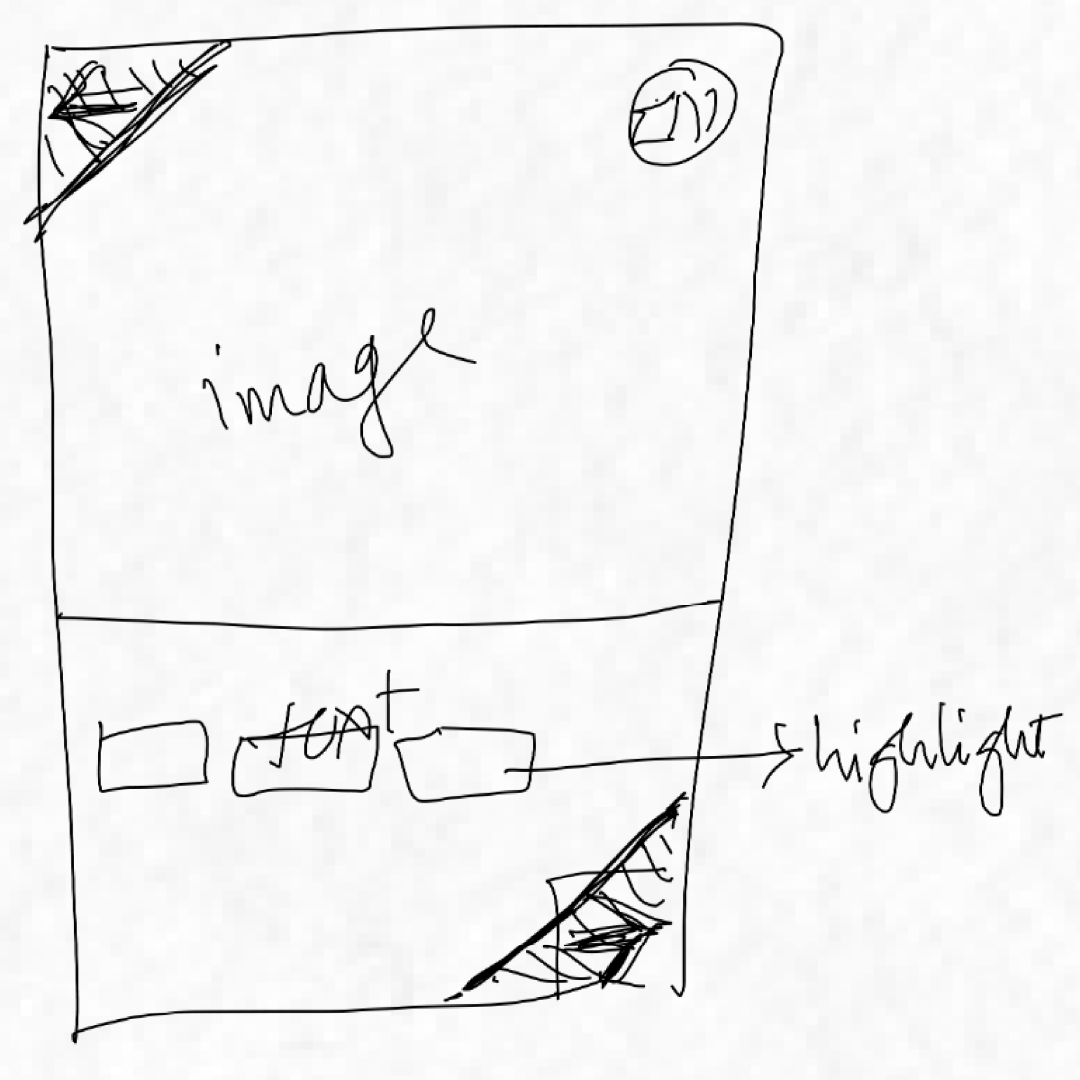 image
text
highlight